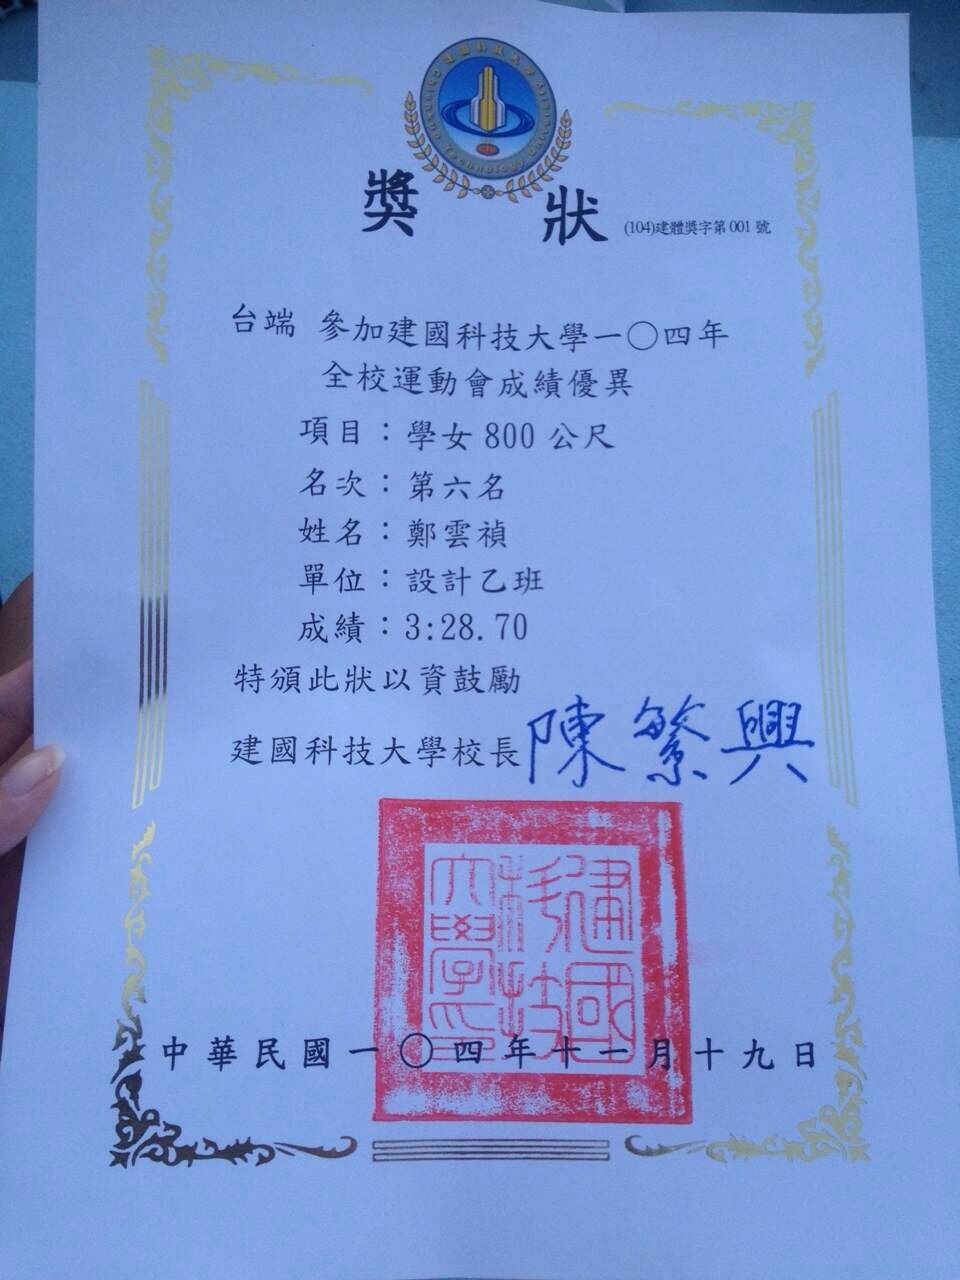 建國科技大學
Technology University
獎狀
(104)建體獎字第001號
台端 參加建國科技大學一〇四年
全校運動會成績優異
項目：學女800公尺
名次：第六名
姓名：鄭雲禎
單位：設計乙班
成績：3:28.70
特頒此狀以資鼓勵
建國科技大學校長 陳繁興
建國科技大學印
中華民國一〇四年十一月十九日